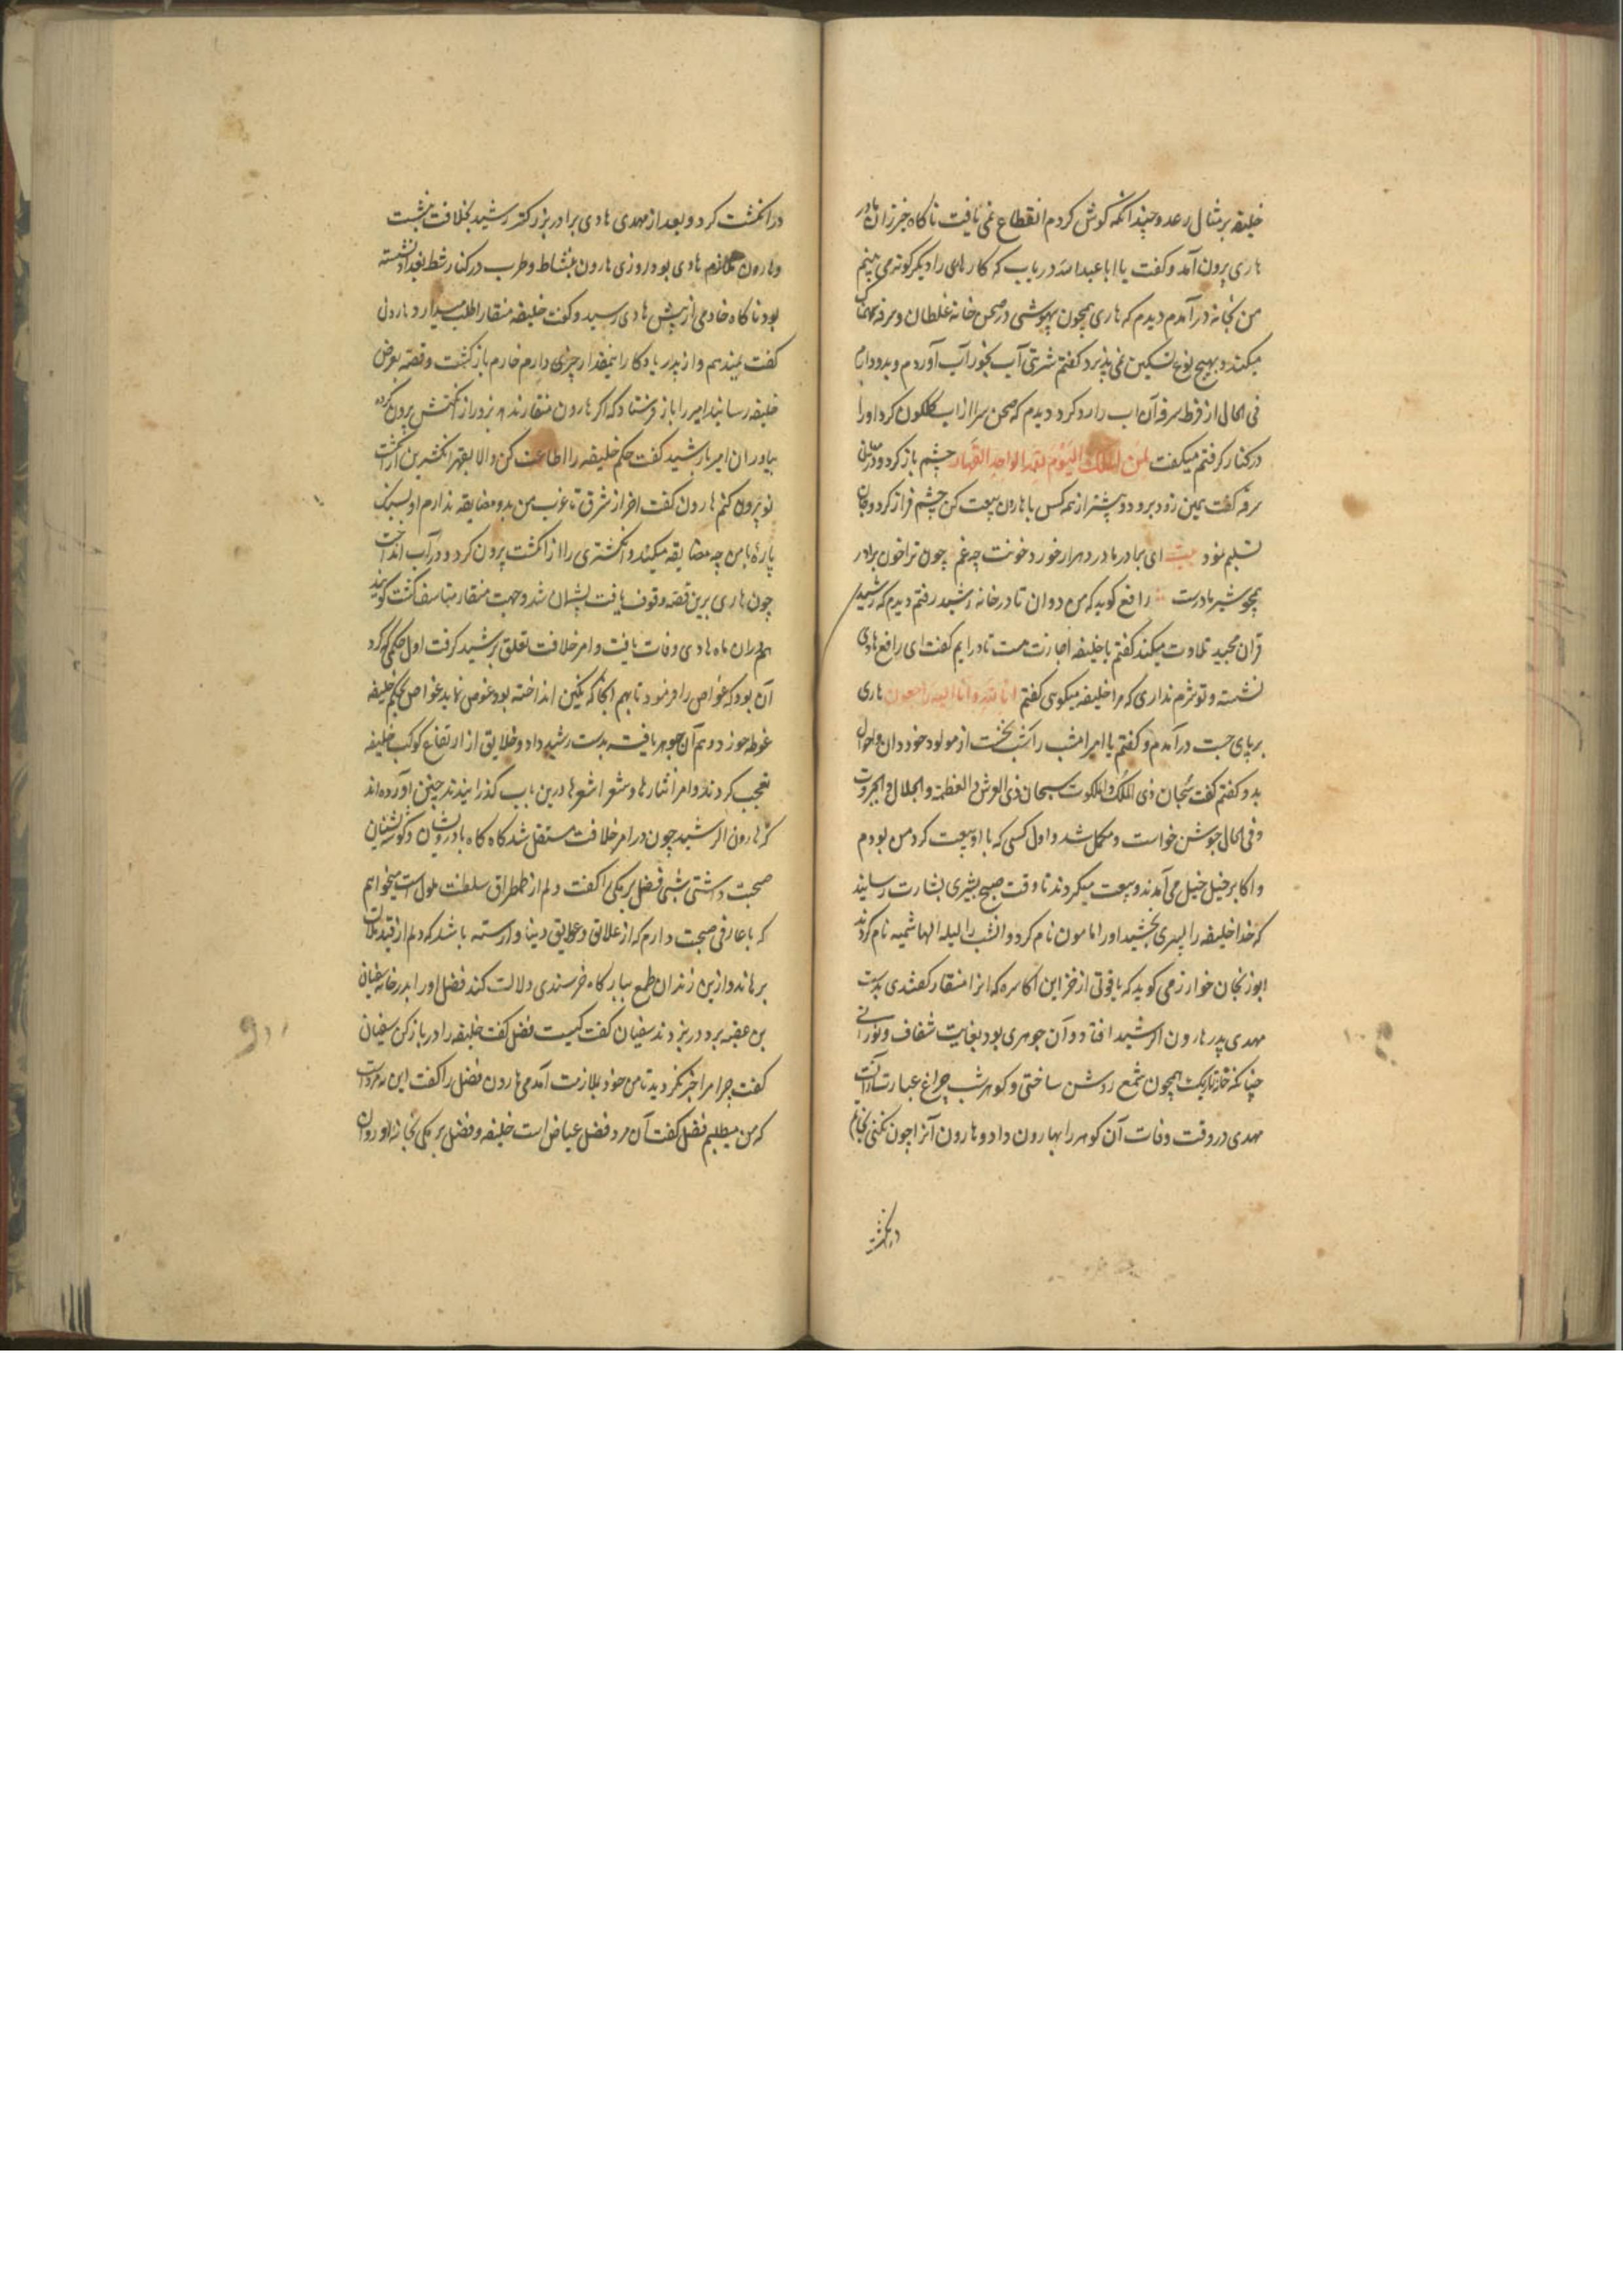 خلیفه بر مثال رعد و چندانکه گوش کردم انقطاع نمی یافت ناکاه خیزران مادر
هادی بیرون آمد و گفت یا ابا عبدالله دریاب که کار هادی را دیگرگونه می بینم
من بخانه در آمدم دیدم که هادی همچون بیهوشی در صحن خانه غلطان و سرفه
میکند و بهیچ نوع تسکین نمی پذیرد گفتم شربتی آب بخور آب آوردم و بدو دادم
فی الحال از فرط سرفه آن اب را رد کرد دیدم که صحن سرا از اب گلگون کرد او را
در کنار گرفتم میگفت لمن الملک الیوم لله الواحد القهار چشم باز کرد و در میان
سرفه گفت همین زود برو و پیشتر از همه کس با هارون بیعت کن چشم فراز کرد و جان
تسلیم نمود بیت ای برادر مادر دهر ار خورد خونت چه غم چون ترا خون برادر
همچو شیر مادرست رافع گوید که من دوان تا در خانه رشید رفتم دیدم که رشید
قران مجید تلاوت میکند گفتم یا خلیفه اجازت هست تا درایم گفت ای رافع هادی
نشسته و تو شرم نداری که مرا خلیفه میگویی گفتم انا لله و انا الیه راجعون هادی
بر پای جست در آمدم و گفتم یا امیر امشب را شب بخت از مولود خود دان و احوال
بدو گفتم گفت سبحان ذی الملک والملکوت سبحان ذی العرش والعظمة والجلال والجبروت
و فی الحال جوشن خواست و مکمل شد و اول کسی که با او بیعت کرد من بودم
و اکابر خیل خیل می آمدند و بیعت میکردند تا وقت صبح بشیری بشارت رسانید
که خدا خلیفه را پسری بخشید او را مامون نام کرد و انشب را لیلة الهاشمیه نام کردند
خوارزمی گوید که یاقوتی از خزاین اکاسره که انرا منقار گفتندی بدست
مهدی پدر هارون الرشید افتاد و آن جوهری بود بغایت شفاف و نورانی
چنانکه خانه تاریک همچون شمع روشن ساختی و گوهر شب چراغ عبارت از آنست
مهدی در وقت وفات آن گوهر را بهارون داد و هارون آنرا چون نگینی بخاتم
در انگشت
در انگشت کرد و بعد از مهدی هادی برادر بزرگتر رشید بخلافت بنشست
و هارون ملازم هادی بود روزی هارون بنشاط و طرب در کنار شط بغداد نشسته
بود ناکاه خادمی از پیش هادی رسید و گفت خلیفه منقار اطلب میدارد هارون
گفت نمیدهم و از پدر یادگار اینمقدار چیزی دارم خادم بازگشت و قصه بعرض
خلیفه رسانید امیر را باز فرستاد که اگر هارون منقار ندهد بزور از انگشتش بیرون کرده
بیاور ان امیر با رشید گفت حکم خلیفه را اطاعت کن والا بقهر انگشترین از انگشت
تو بیرون کنم هارون گفت اخر از شرق تا غرب من بدو مضایقه ندارم او بسنگ
پارهٔ با من چه مضایقه میکند و انگشتری را از انگشت بیرون کرد و در آب انداخت
چون هادی برین قصه وقوف یافت پشیمان شد و جهت منقار متاسف گشت گویند
هم دران ماه هادی وفات یافت و امر خلافت تعلق برشید گرفت اول حکمی که کرد
آن بود که غواص را فرمود تا بهم انجا که نگین انداخته بود غوص نماید غواص بحکم خلیفه
غوطه خورد و هم آن جوهر یافت بدست رشید داد و خلایق از ارتفاع کوکب خلیفه
تعجب کردند و امرا نثارها و شعرا شعرها درین باب گذرانیدند چنین آورده اند
که هارون الرشید چون در امر خلافت مستقل شد گاه گاه با درویشان و گوشه نشینان
صحبت داشتی شبی فضل برمکی را گفت دلم از طمطراق سلطنت ملول است میخواهم
که با عارفی صحبت دارم که از علایق و عوایق دنیا وارسته باشد که دلم از قید
برهاند و ازین زندان طمع ببارگاه خرسندی دلالت کند فضل او را بدر خانه سفیان
بن عقبه برد و در بزدند سفیان گفت کیست فضل گفت خلیفه را در باز کن سفیان
گفت چرا مرا خبر نکردید تا من خود بملازمت آمدمی هارون فضل را گفت این نه مرد است
که من میطلبم فضل گفت آن مرد فضل عیاض است خلیفه و فضل برمکی بخانه او روان